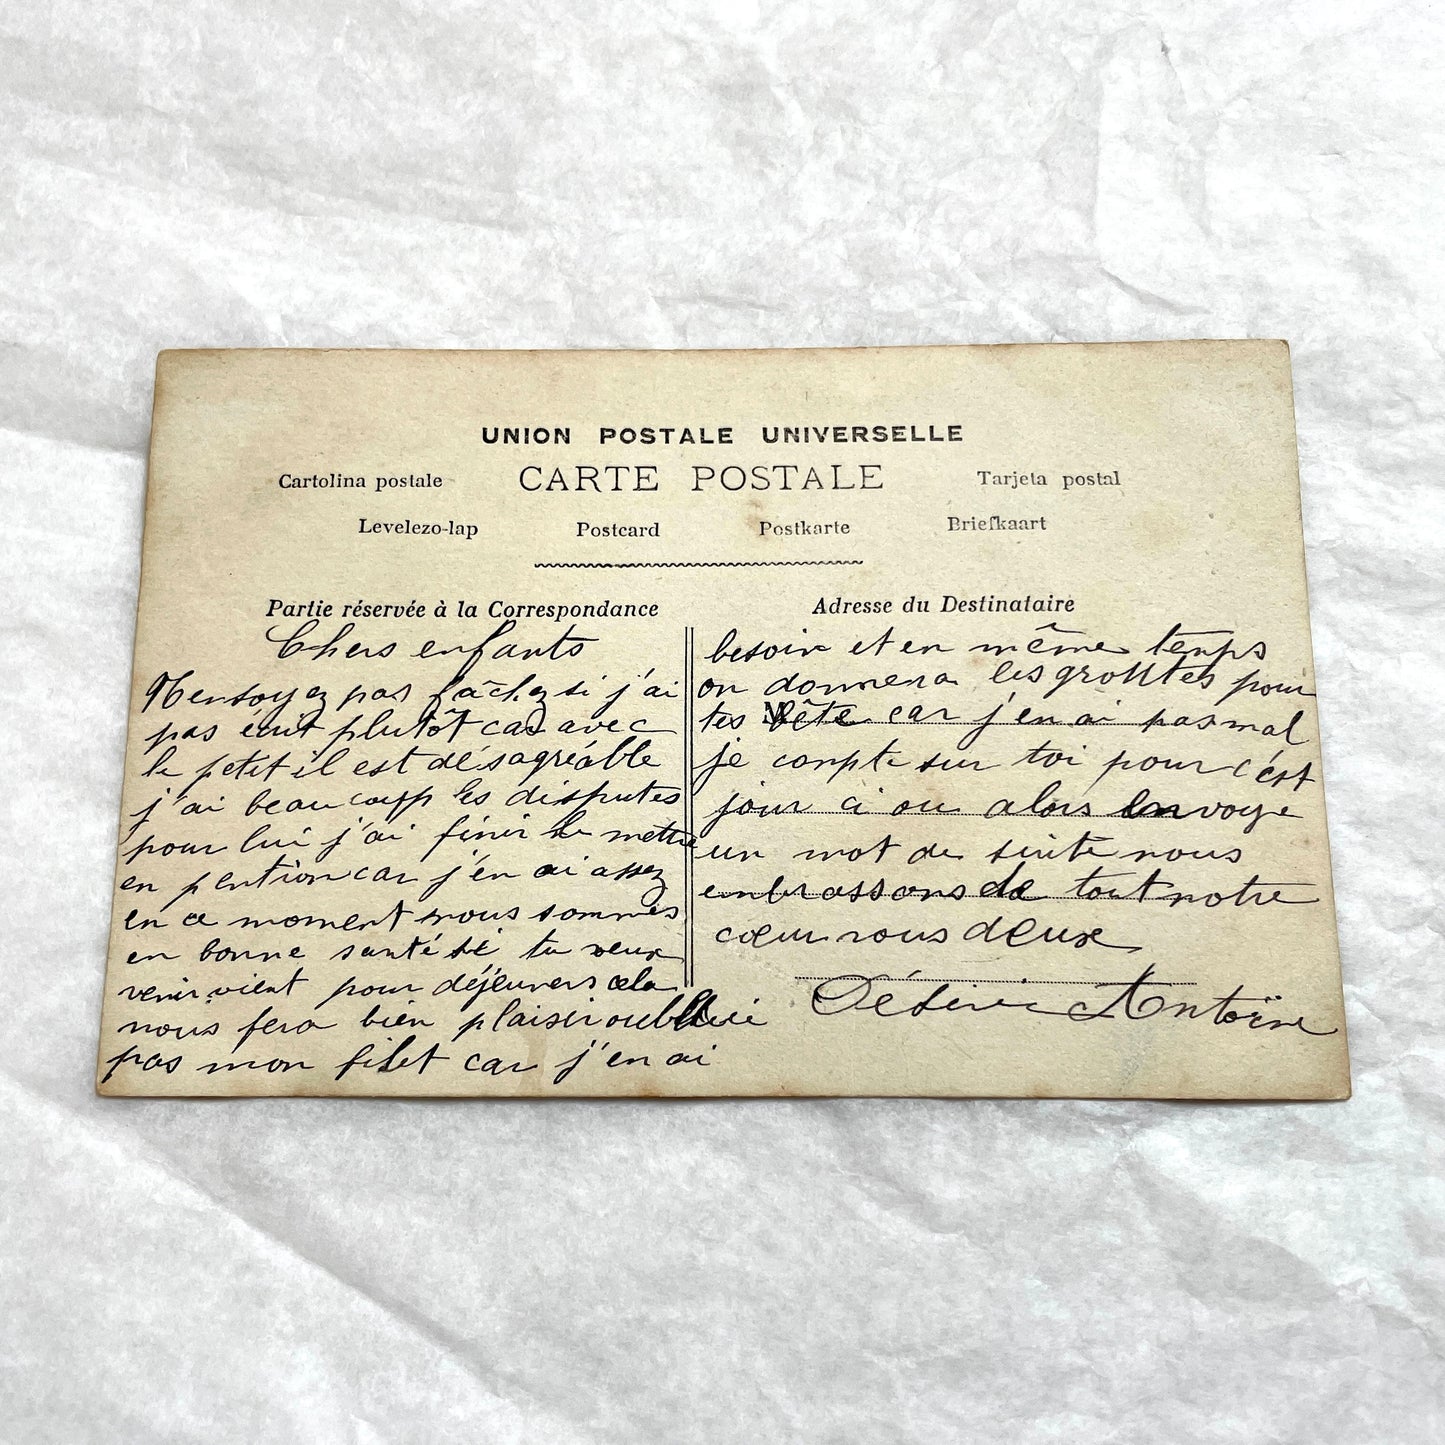 UNION POSTALE UNIVERSELLE
Cartolina postale CARTE POSTALE Tarjeta postal
Levelezo-lap Postcard Postkarte Briefkaart
Partie réservée à la Correspondance
Chers enfants
N'ensoyez pas fâchez si j'ai
pas écrit plutôt car avec
le petit il est désagréable
j'ai beaucoup les disputes
pour lui j'ai finir le mettre
en pention car j'en ai assez
en ce moment nous sommes
en bonne santé si tu veux
venir vient pour déjeuners cela
nous fera bien plaisir oublie
pas mon filet car j'en ai
Adresse du Destinataire
besoin et en même temps
on donnera les grouttes pour
tes bête car j'en ai pas mal
je compte sur toi pour c'est
jour ci ou alors envoye
un mot de suite nous
embrassons de tout notre
cœur vous deux
Désirir Antoïne